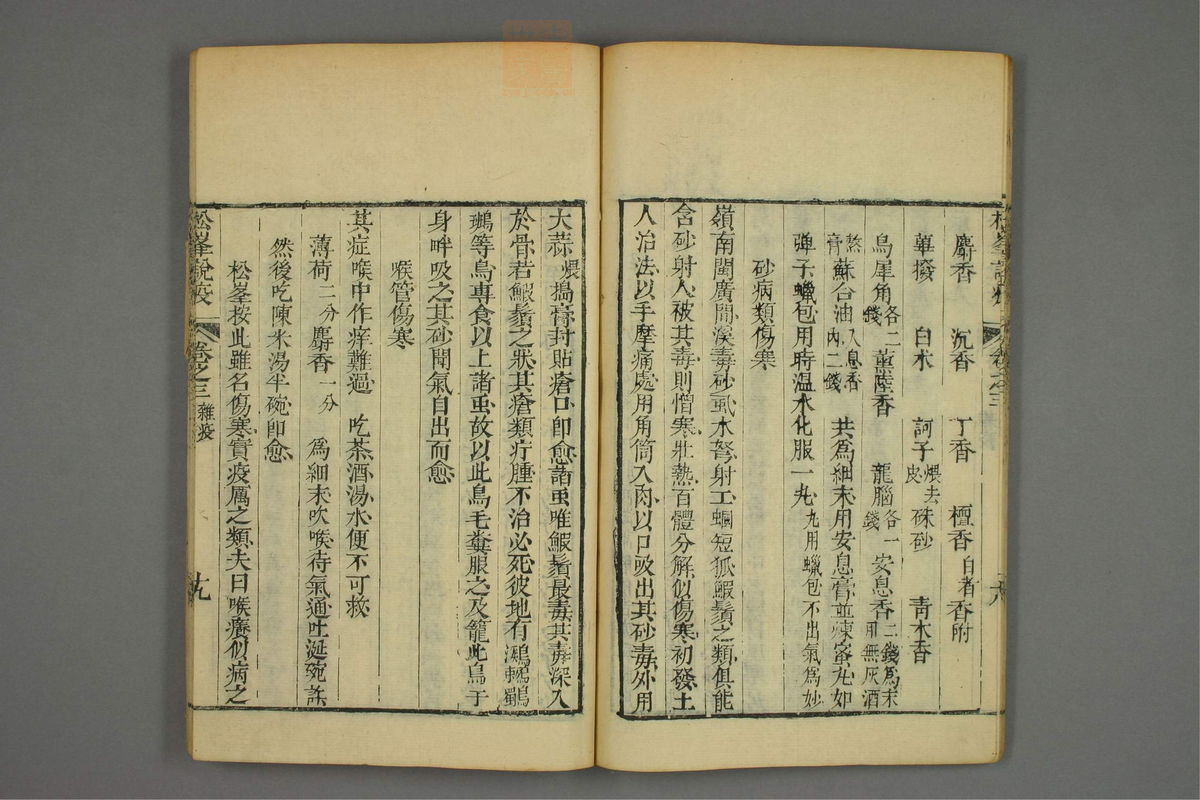 松峯說疫 卷之三 十八
麝香 沉香 丁香 檀香白者 香附
蓽撥 白朮 訶子煨去皮 硃砂 青木香
烏犀角各二錢 薰陸香 龍腦各一錢 安息香二錢爲末用無灰酒
熬膏 蘇合油入息香內二錢 共爲細末用安息膏並煉蜜丸如
彈子蠟包用時温水化服一丸丸用蠟包不出氣爲妙
砂病類傷寒
嶺南閩廣間溪毒砂虱水弩射工蟈短狐鰕鬚之類俱能
含砂射人被其毒則憎寒壯熱百體分解似傷寒初發土
人治法以手摩痛處用角筒入肉以口吸出其砂毒外用
大蒜煨搗膏封貼瘡口卽愈諸虫唯鰕鬚最毒其毒深入
於骨若鰕鬚之狀其瘡類疔腫不治必死彼地有鸂鶒鸀
鳿等鳥專食以上諸虫故以此鳥毛糞服之及籠此鳥于
身畔吸之其砂聞氣自出而愈
喉管傷寒
其症喉中作痒難過 吃茶酒湯水便不可救
薄荷二分 麝香一分 爲細末吹喉待氣通吐涎碗許
然後吃陳米湯半碗卽愈
松峯按此雖名傷寒實疫厲之類夫曰喉癢似病之
松峯說疫 卷之三 雜疫 十九